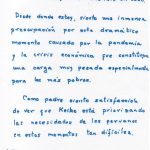 Desde donde estoy, siento una inmensa
preocupación por este dramático
momento causado por la pandemia
y la crisis económica que constituye
una carga muy pesada especialmente
para los más pobres.
Como padre siento satisfacción
de ver que Keiko está priorizando
las necesidades de los peruanos
en estos momentos tan difíciles.